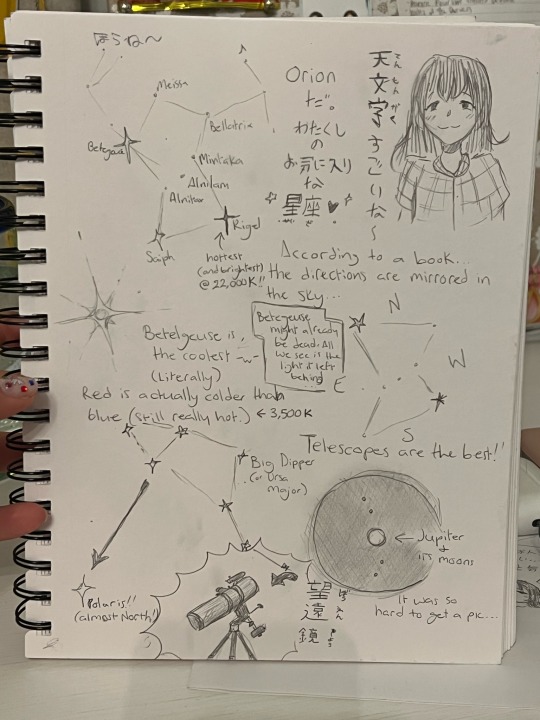 ほうね〜
Meissa
Bellatrix
Betelgeuse
Mintaka
Alnilam
Alnitak
Saiph
Rigel
hottest
(and brightest)
@ 22,000K!!
Orion
だ。
わたくし
の
お気に入り
な
星座♥
天文学すごいな〜
According to a book...
the directions are mirrored in
the sky...
N
W
E
S
Betelgeuse is,
the coolest -w-
(Literally)
Betegeuse
might already
be dead. All
we see is the
light it left
behind
Red is actually colder than
blue (still really hot.) ← 3,500K
Telescopes are the best!!
Big Dipper
(or Ursa
Major)
Polaris!!
(almost North!)
Jupiter
+
its moons
It was so
hard to get a pic...
望遠鏡
ぼうえんきょう